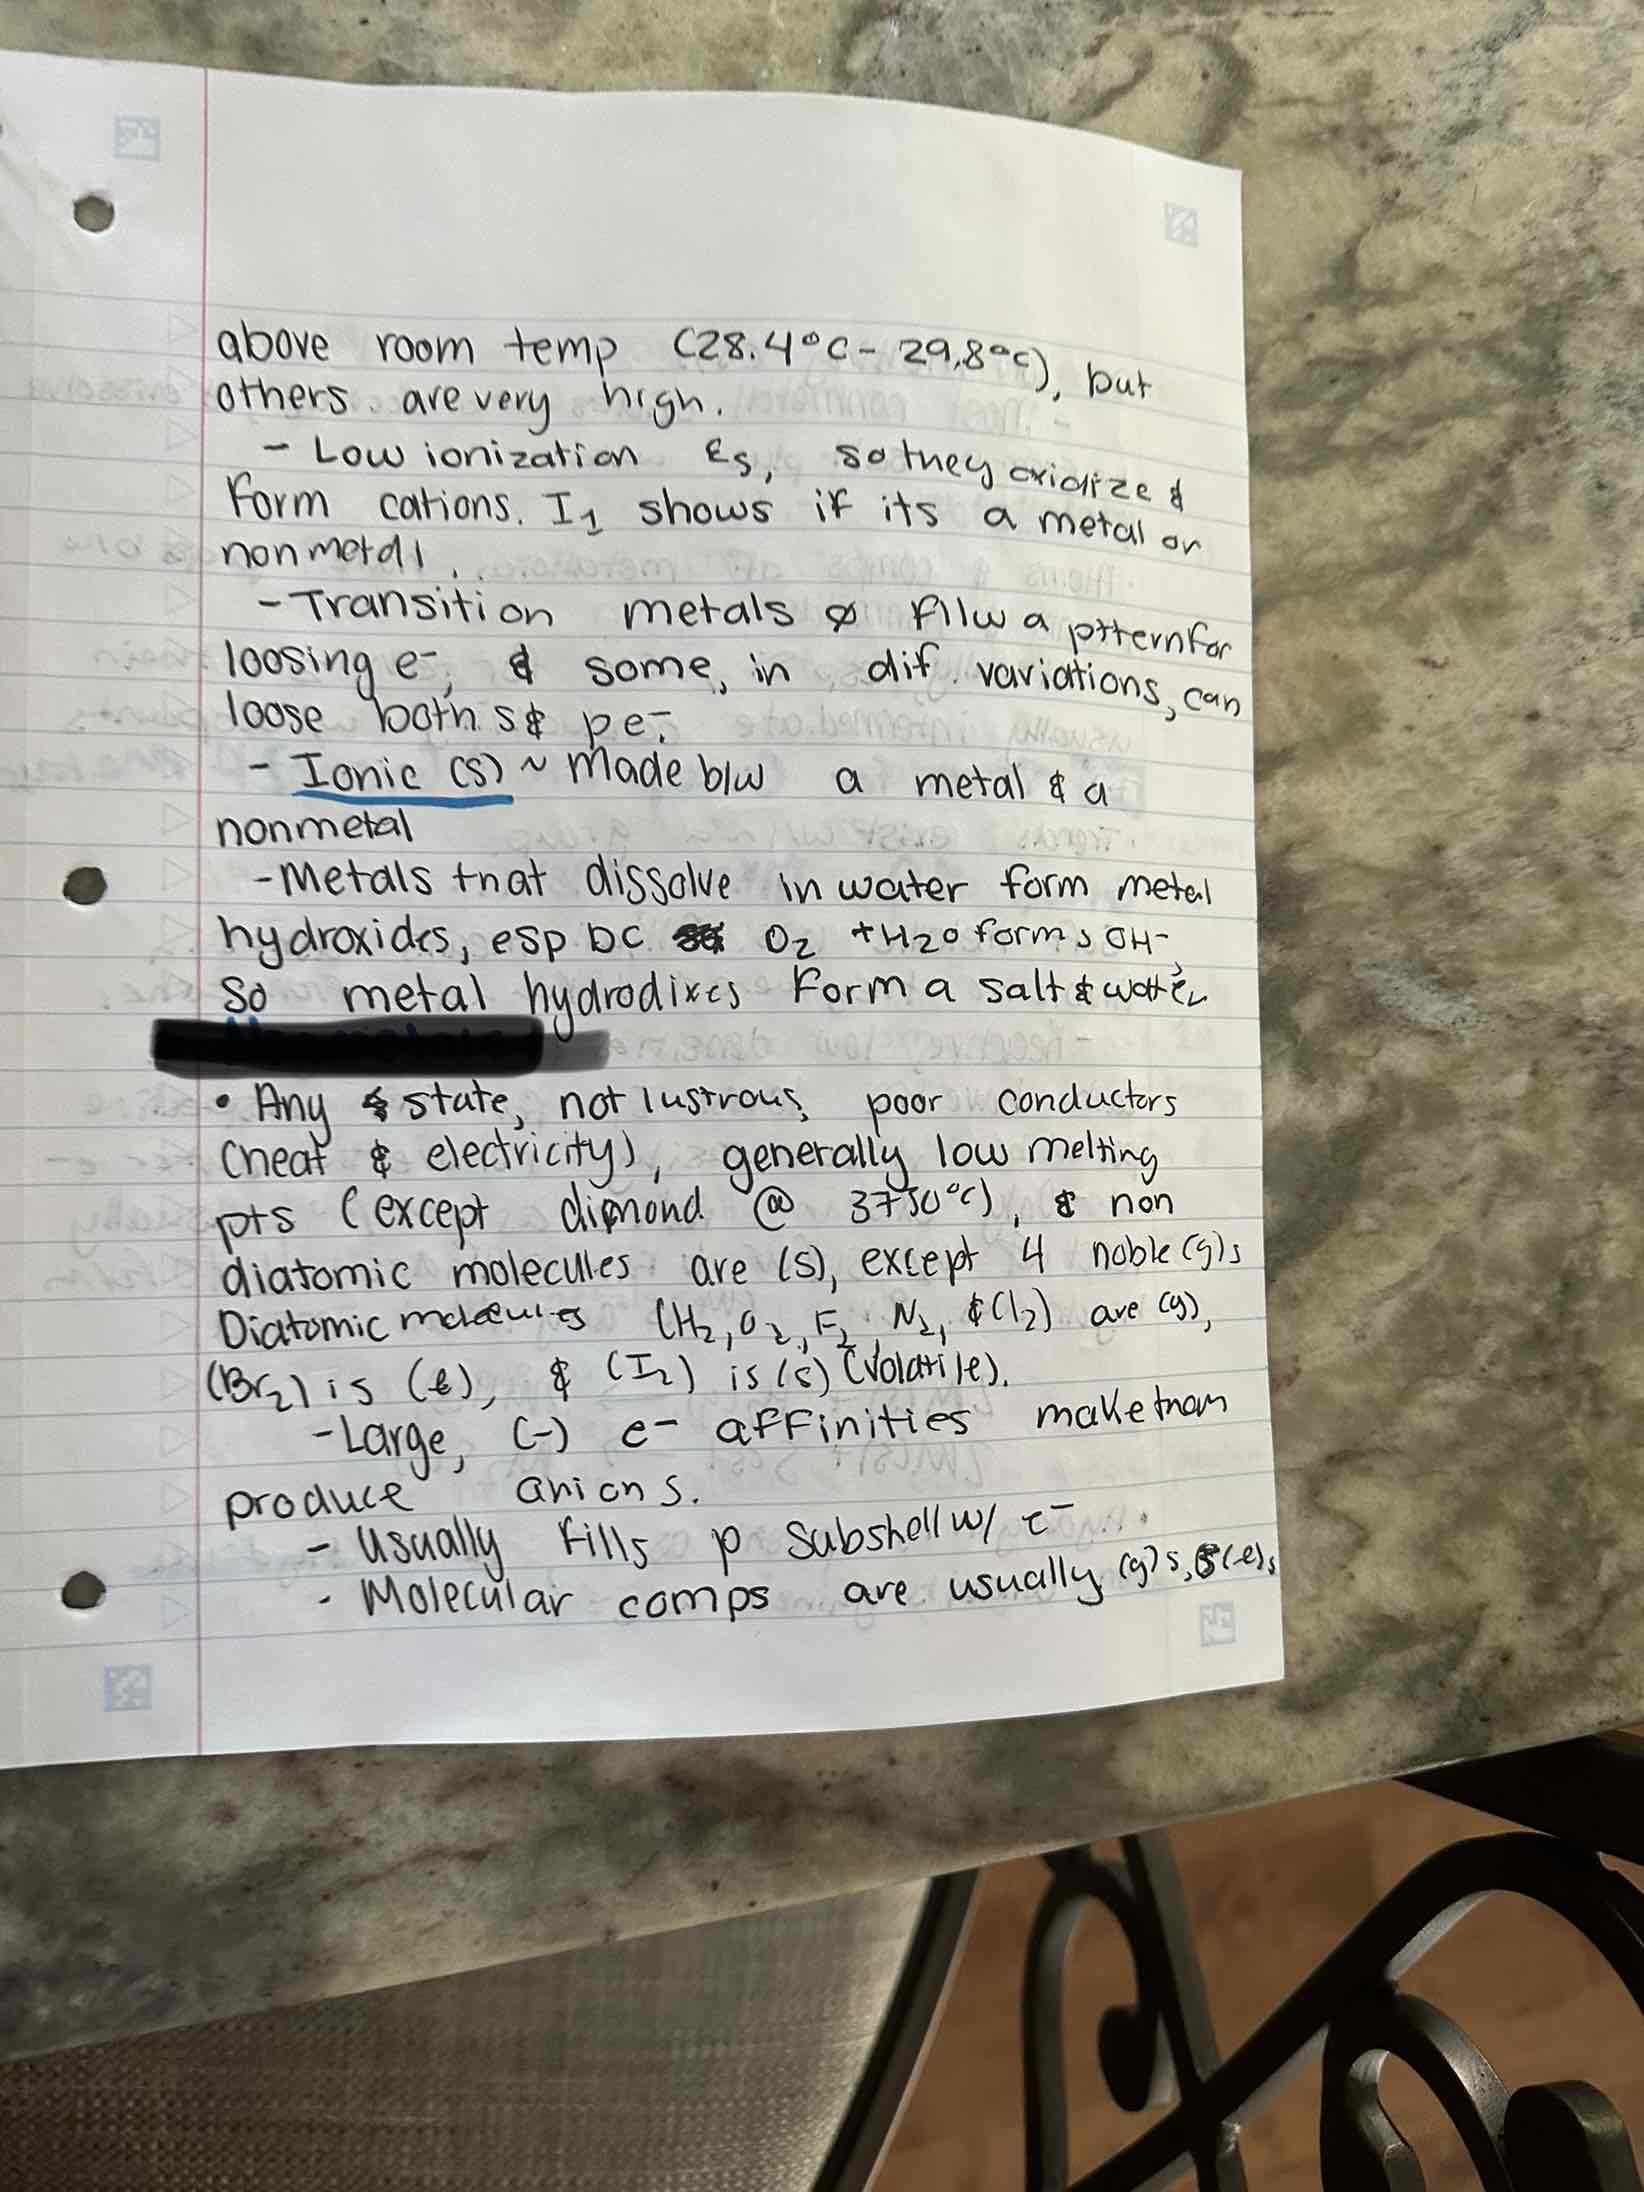 above room temp (28.4°C - 29.8°C), but
others are very high.
- Low ionization Es, so they oxidize &
form cations. I1 shows if its a metal or
nonmetal.
- Transition metals ø fllw a pttern for
loosing e-, & some, in dif. variations, can
loose both s & p e-.
- Ionic (s) ~ Made b/w a metal & a
nonmetal
- Metals that dissolve in water form metal
hydroxides, esp bc O2 + H2O forms OH-,
So metal hydrodixes form a salt & water
• Any state, not lustrous, poor conductors
(heat & electricity), generally low melting
pts (except dimond @ 3750°C), & non
diatomic molecules are (s), except 4 noble (g)s
Diatomic molecules (H2, O2, F2, N2, & Cl2) are (g),
(Br2) is (l), & (I2) is (s) (volatile).
- Large, (-) e- affinities make them
produce anions.
- Usually fills p subshell w/ e-
- Molecular comps are usually (g)s, (l)s